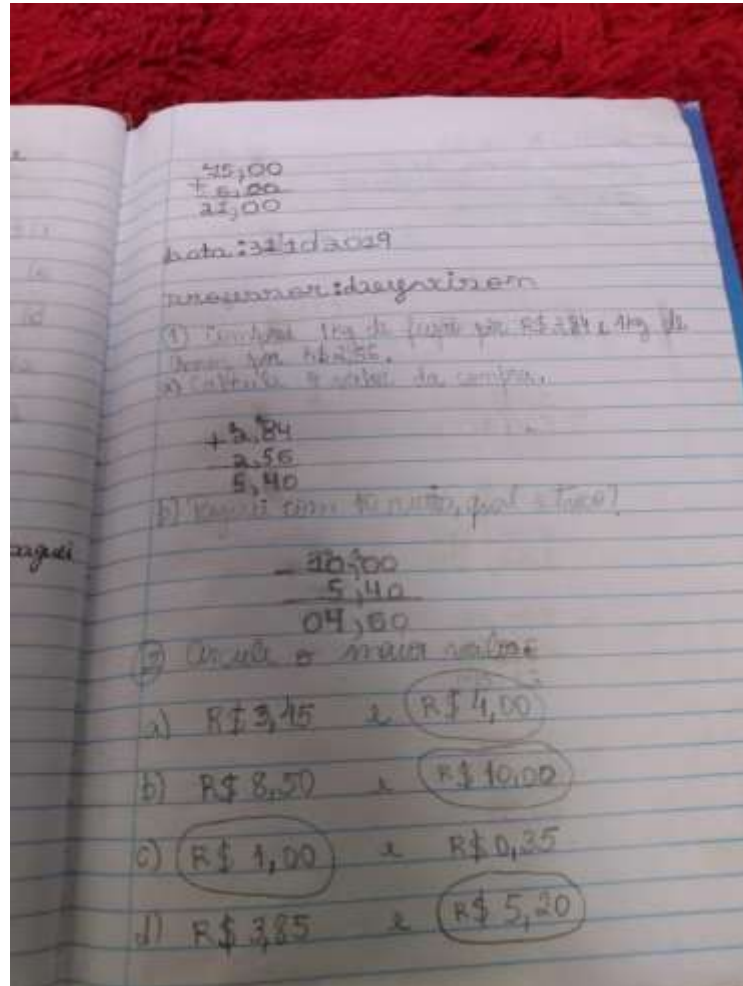 15,00
+ 6,00
21,00
Data:31/10/2019
(1) Comprei 1kg de feijão por R$ 2,84 e 1kg de
por R$ 2,56.
a) Calcule o valor da compra.
+ 2,84
2,56
5,40
b) Paguei com 10 reais, qual o troco?
- 10,00
5,40
04,60
2) Circule o maior valor:
a) R$ 3,45 e R$ 4,00
b) R$ 8,50 e R$ 10,00
c) R$ 1,00 e R$ 0,35
d) R$ 3,85 e R$ 5,20